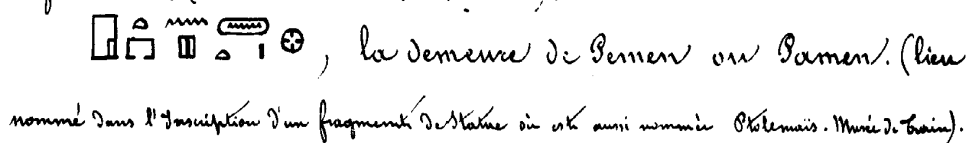 , la demeure de Pemen ou Pamen. (lieu
nommé dans l'Inscription d'un fragment de Statue où est aussi nommée Ptolémaïs. Musée de Turin).